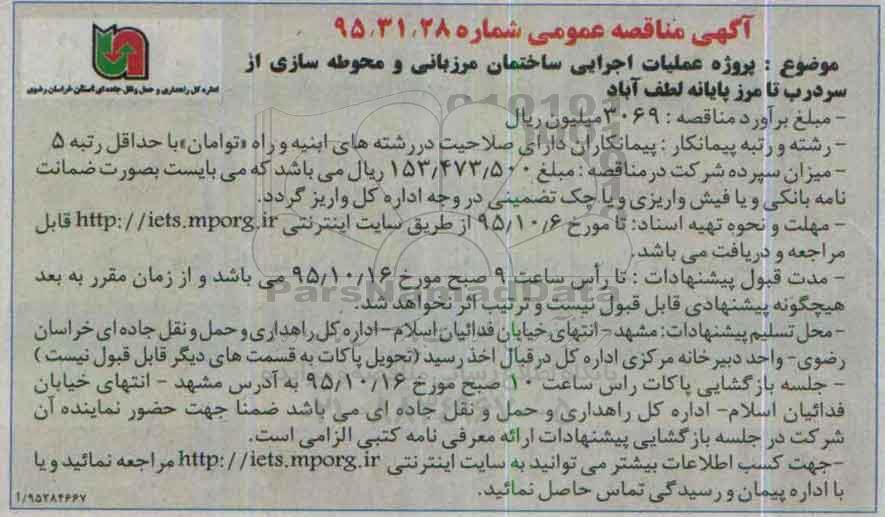 آگهی مناقصه عمومی شماره ۹۵،۳۱،۲۸
اداره کل راهداری و حمل ونقل جاده ای استان خراسان رضوی
موضوع : پروژه عملیات اجرایی ساختمان مرزبانی و محوطه سازی از
سردرب تا مرز پایانه لطف آباد
- مبلغ برآورد مناقصه : ۳۰۶۹میلیون ریال
- رشته و رتبه پیمانکار : پیمانکاران دارای صلاحیت در رشته های ابنیه و راه «توامان»با حداقل رتبه ۵
- میزان سپرده شرکت در مناقصه : مبلغ ۱۵۳٫۴۷۳٫۵۰۰ ریال می باشد که می بایست بصورت ضمانت
نامه بانکی و یا فیش واریزی و یا چک تضمینی در وجه اداره کل واریز گردد.
- مهلت و نحوه تهیه اسناد: تا مورخ ۹۵٫۱۰٫۶ از طریق سایت اینترنتی http://iets.mporg.ir قابل
مراجعه و دریافت می باشد.
- مدت قبول پیشنهادات : تا رأس ساعت ۹ صبح مورخ ۹۵٫۱۰٫۱۶ می باشد و از زمان مقرر به بعد
هیچگونه پیشنهادی قابل قبول نیست و ترتیب اثر نخواهد شد.
ParsNamadData
- محل تسلیم پیشنهادات: مشهد- انتهای خیابان فدائیان اسلام- اداره کل راهداری و حمل و نقل جاده ای خراسان
رضوی- واحد دبیرخانه مرکزی اداره کل در قبال اخذ رسید (تحویل پاکات به قسمت های دیگر قابل قبول نیست )
- جلسه بازگشایی پاکات راس ساعت ۱۰ صبح مورخ ۹۵٫۱۰٫۱۶ به آدرس مشهد - انتهای خیابان
فدائیان اسلام- اداره کل راهداری و حمل و نقل جاده ای می باشد ضمنا جهت حضور نماینده آن
شرکت در جلسه بازگشایی پیشنهادات ارائه معرفی نامه کتبی الزامی است.
-جهت کسب اطلاعات بیشتر می توانید به سایت اینترنتی http://iets.mporg.ir مراجعه نمائید و یا
با اداره پیمان و رسیدگی تماس حاصل نمائید.
۹۵۲۸۴۶۶۷/۱